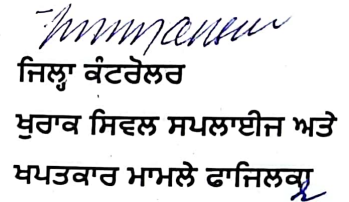 ਜਿਲ੍ਹਾ ਕੰਟਰੋਲਰ
ਖੁਰਾਕ ਸਿਵਲ ਸਪਲਾਈਜ ਅਤੇ
ਖਪਤਕਾਰ ਮਾਮਲੇ ਫਾਜਿਲਕਾ